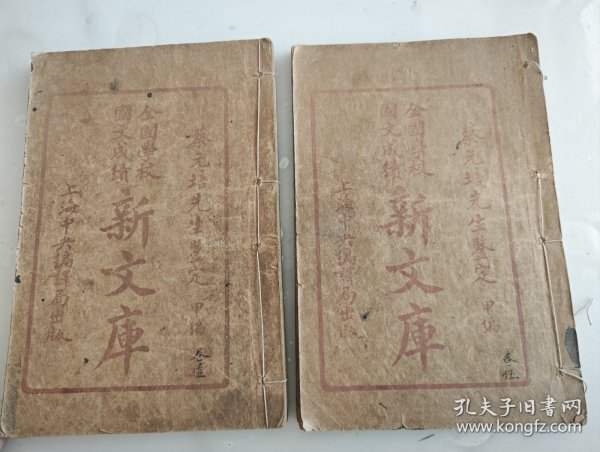 蔡元培先生鑒定 甲編
卷壹
全國學校
國文成績
新文庫
上海中央編譯局出版
蔡元培先生鑒定 甲編
全國學校
國文成績
新文庫
上海中央編譯局出版
孔夫子旧书网
www.kongfz.com